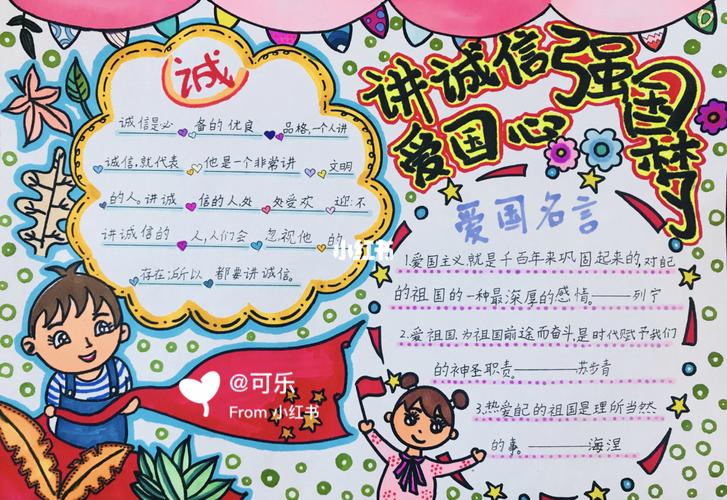 诚
诚信是必备的优良品格,一个人讲
诚信,就代表他是一个非常讲文明
的人。讲诚信的人处处受欢迎;不
讲诚信的人,人们会忽视他的
存在;所以都要讲诚信。
讲诚信强国梦
爱国心
爱国名言
1.爱国主义就是千百年来巩固起来的,对自己
的祖国的一种最深厚的感情。——列宁
2.爱祖国,为祖国前途而奋斗,是时代赋予我们
的神圣职责。——苏步青
3.热爱自己的祖国是理所当然
的事。——海涅
小红书
@可乐
From 小红书